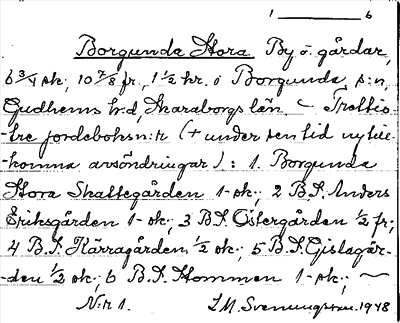 1 ______ 6
Borgunda Stora By o. gårdar,
6 3/4 sk; 10 7/8 fr., 1 1/2 kr. i Borgunda s:n,
Gudhems h:d, Skaraborgs län. – Trettio-
-tre jordeboksn:r (+ under sen tid nytill-
-komna avsöndringar): 1. Borgunda
Stora Skattegården 1-sk; 2 B.S. Anders
Eriksgården 1-sk; 3 B.S. Östergården 1/2 fr;
4 B.S. Kärragården 1/2 sk; 5 B.S. Gislagår-
-den 1/2 sk; 6 B.S. Kommen 1-sk;
N:r 1. L.M. Svenungsson. 1948